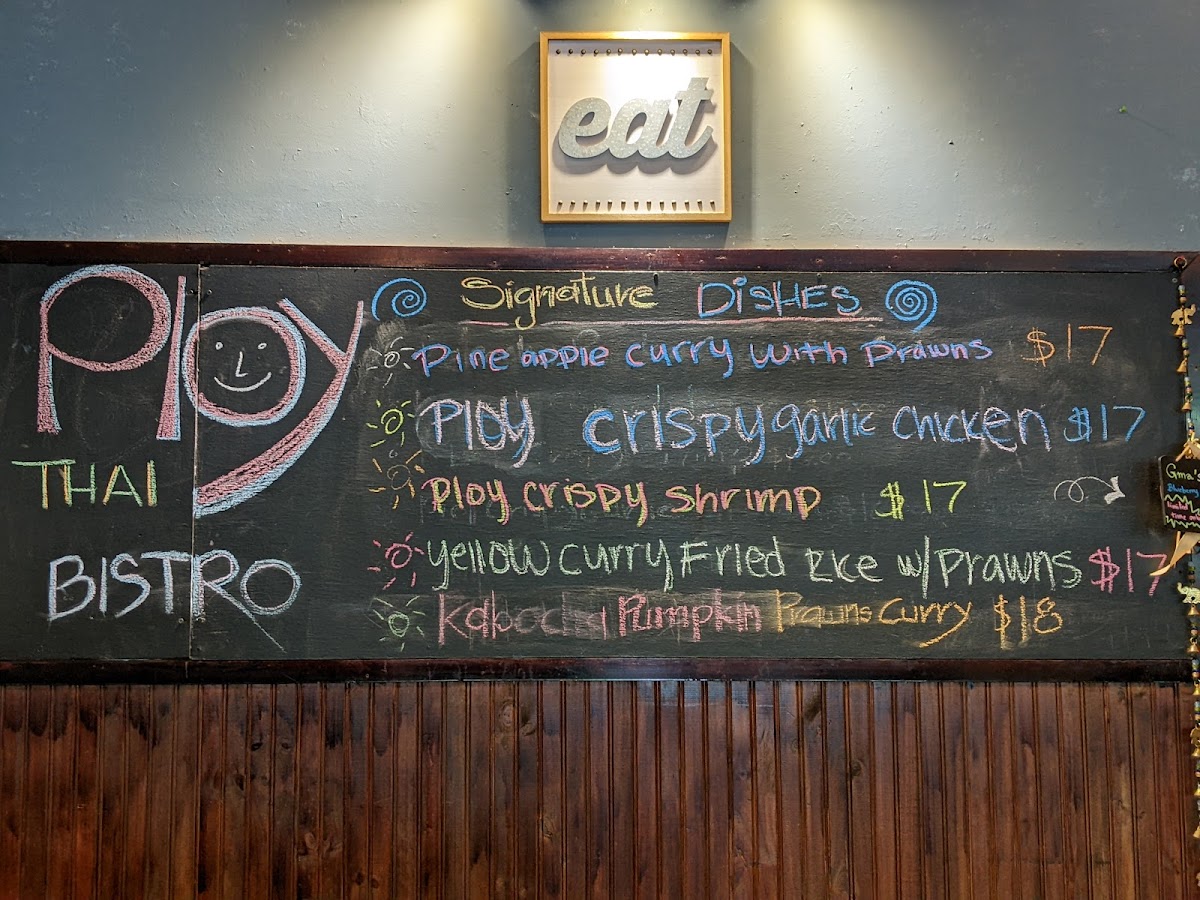 eat
Ploy
THAI
BISTRO
Signature DisHES
Pineapple curry with prawns $17
Ploy crispy garlic chicken $17
Ploy crispy shrimp $17
yellow curry Fried Rice w/ prawns $17
Kabocha Pumpkin Prawns Curry $18
Gma's
Blueberry